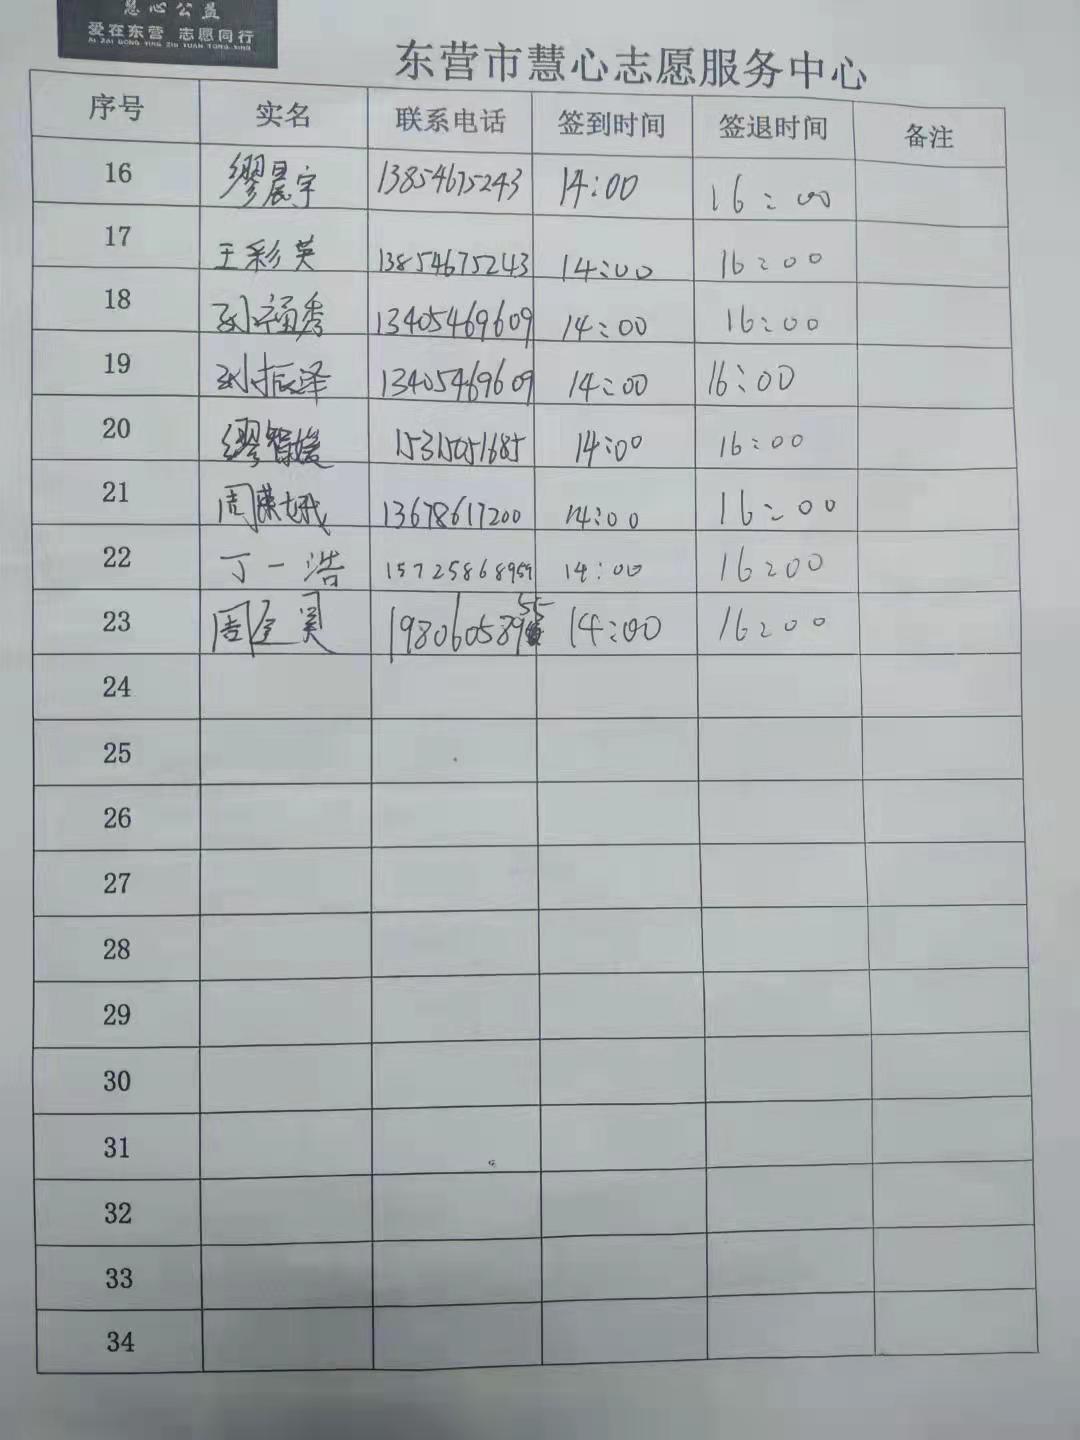 慧心公益
爱在东营 志愿同行
AI ZAI DONG YING ZHI YUAN TONG XING
东营市慧心志愿服务中心
序号 实名 联系电话 签到时间 签退时间 备注
16 缪晨宇 13854675243 14:00 16:00
17 王彩英 13854675243 14:00 16:00
18 孙福秀 13405469609 14:00 16:00
19 孙振泽 13405469609 14:00 16:00
20 缪智媛 15315051685 14:00 16:00
21 周荣娥 13678617200 14:00 16:00
22 丁一浩 15725868959 14:00 16:00
23 周 昊 19806058955 14:00 16:00
24
25
26
27
28
29
30
31
32
33
34